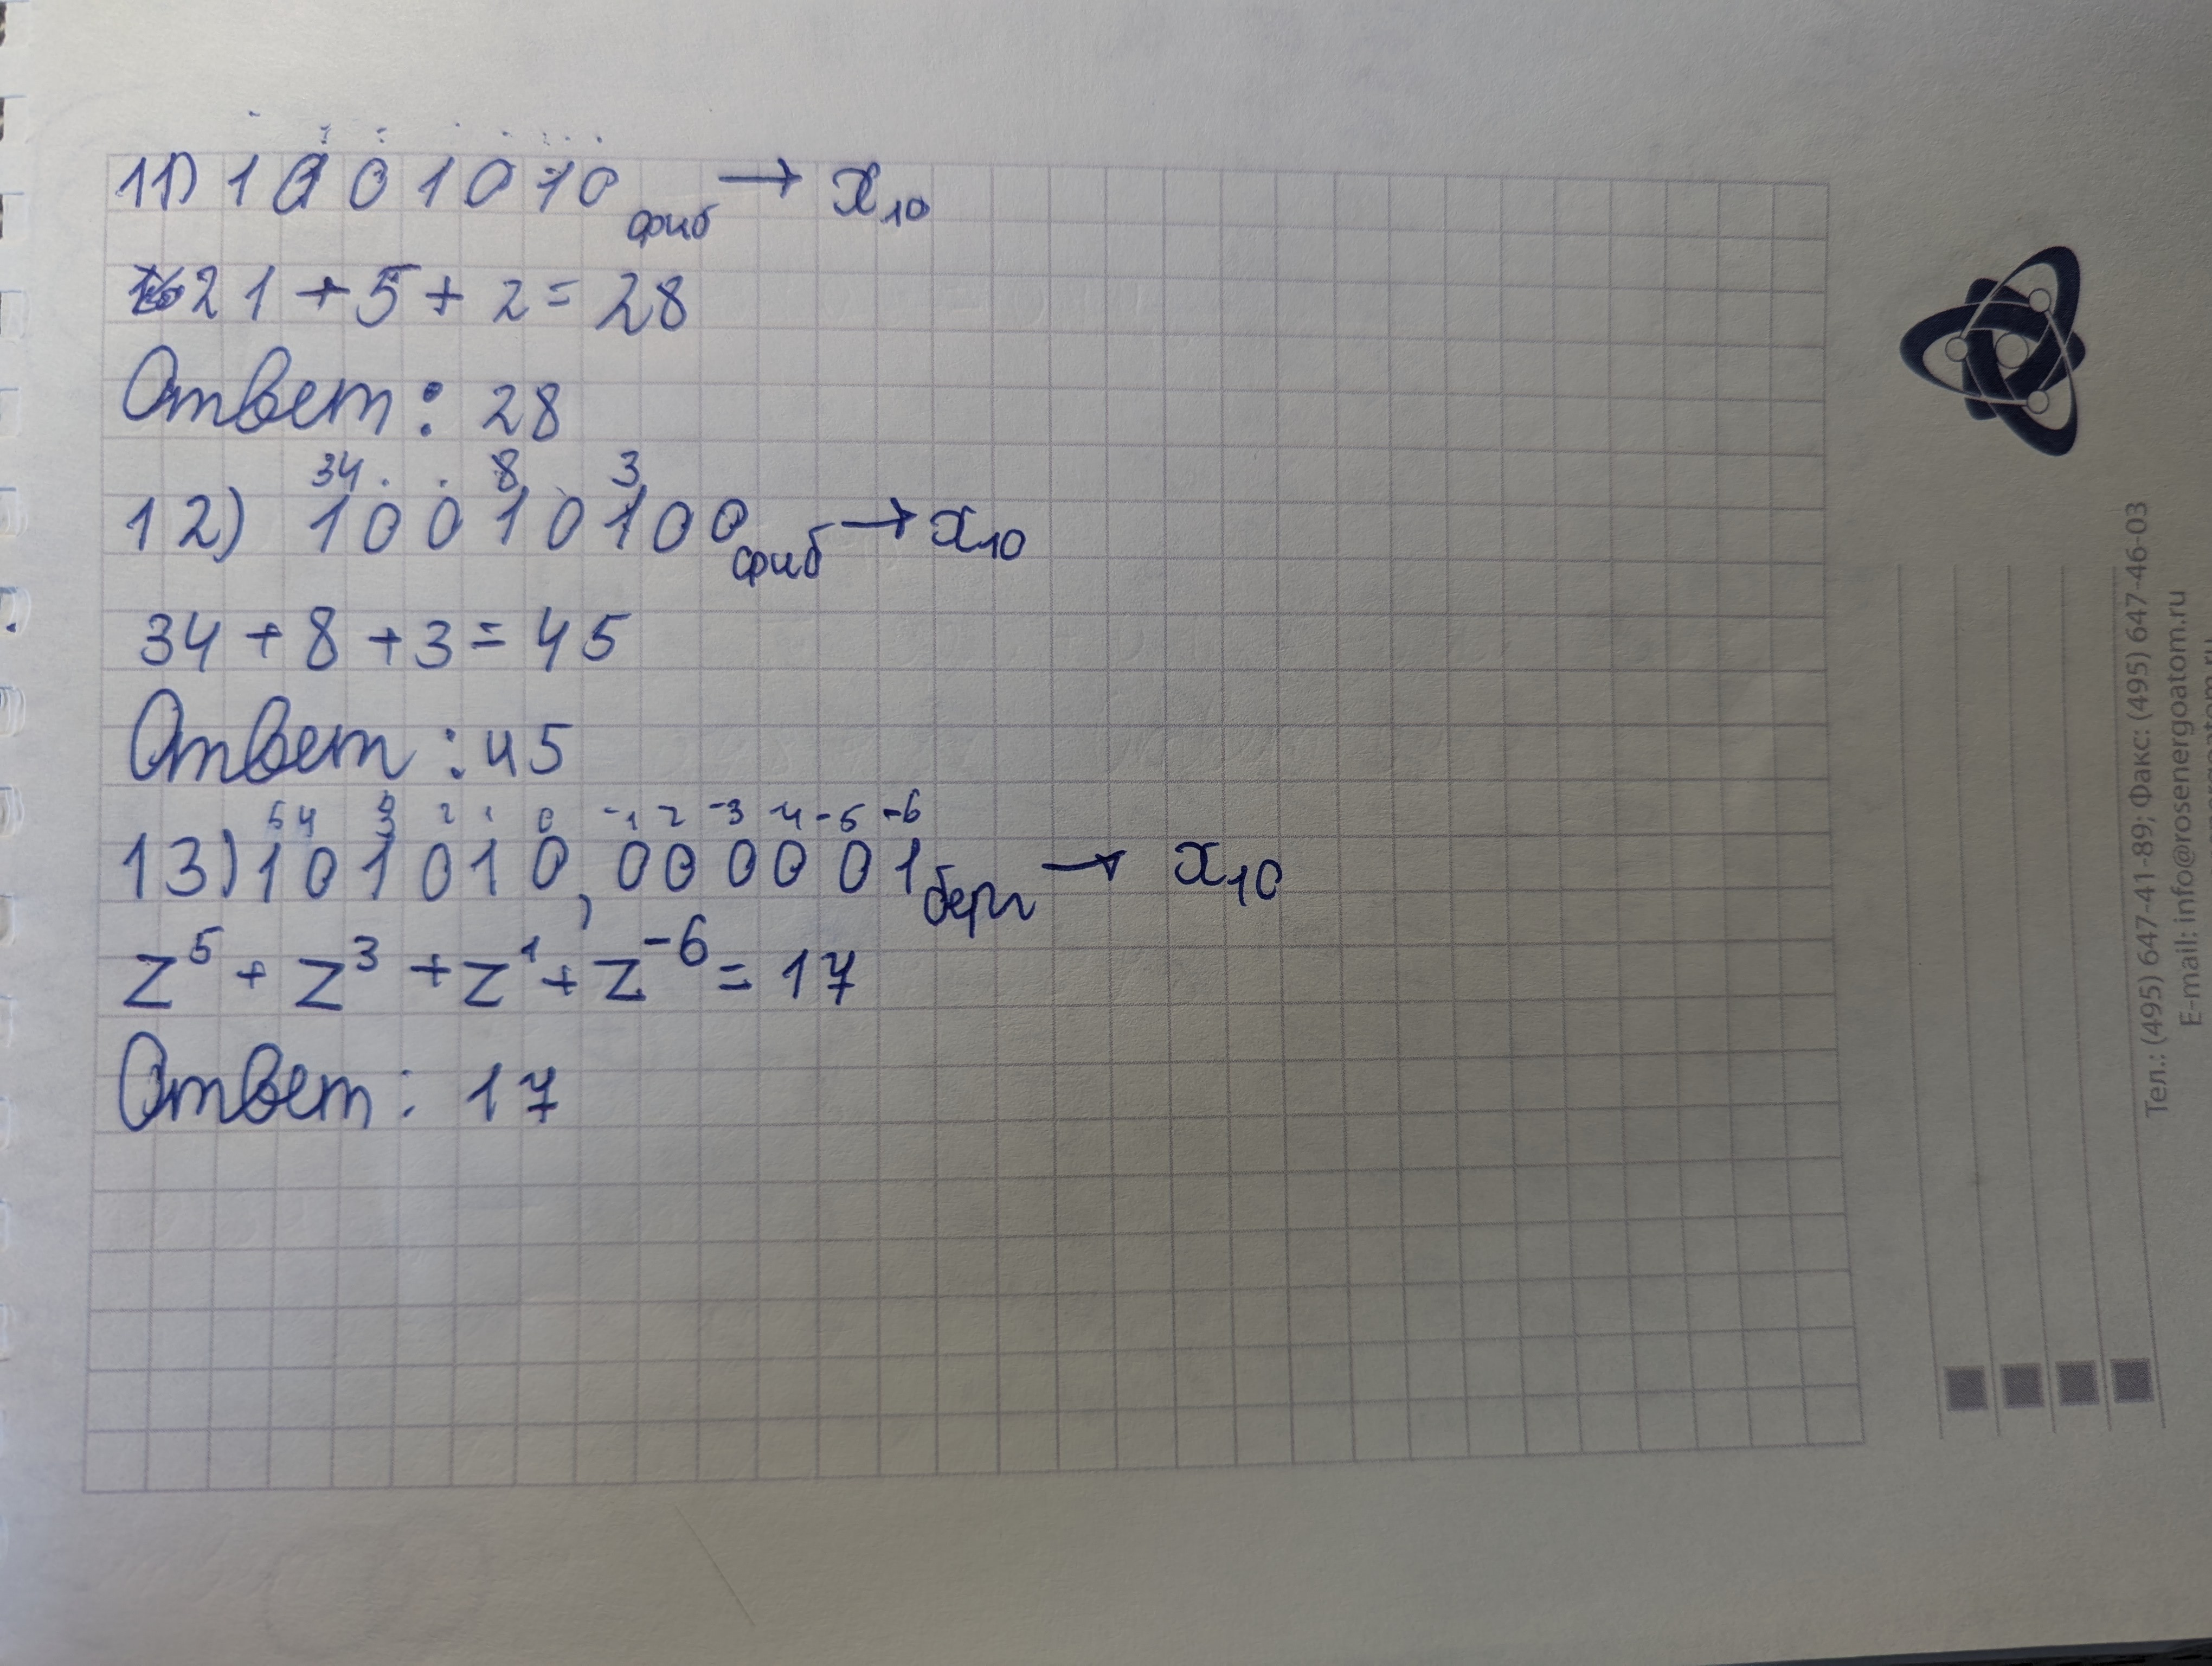 11) 1 0 0 1 0 1 0 фиб → x10
21 + 5 + 2 = 28
Ответ: 28
34 8 3
12) 1 0 0 1 0 1 0 0 фиб → x10
34 + 8 + 3 = 45
Ответ: 45
5 4 3 2 1 0 -1 2 -3 -4 -5 -6
13) 1 0 1 0 1 0, 0 0 0 0 0 1 берг → x10
z^5 + z^3 + z^1 + z^-6 = 17
Ответ: 17
Тел.: (495) 647-41-89; Факс: (495) 647-46-03
E-mail: info@rosenergoatom.ru